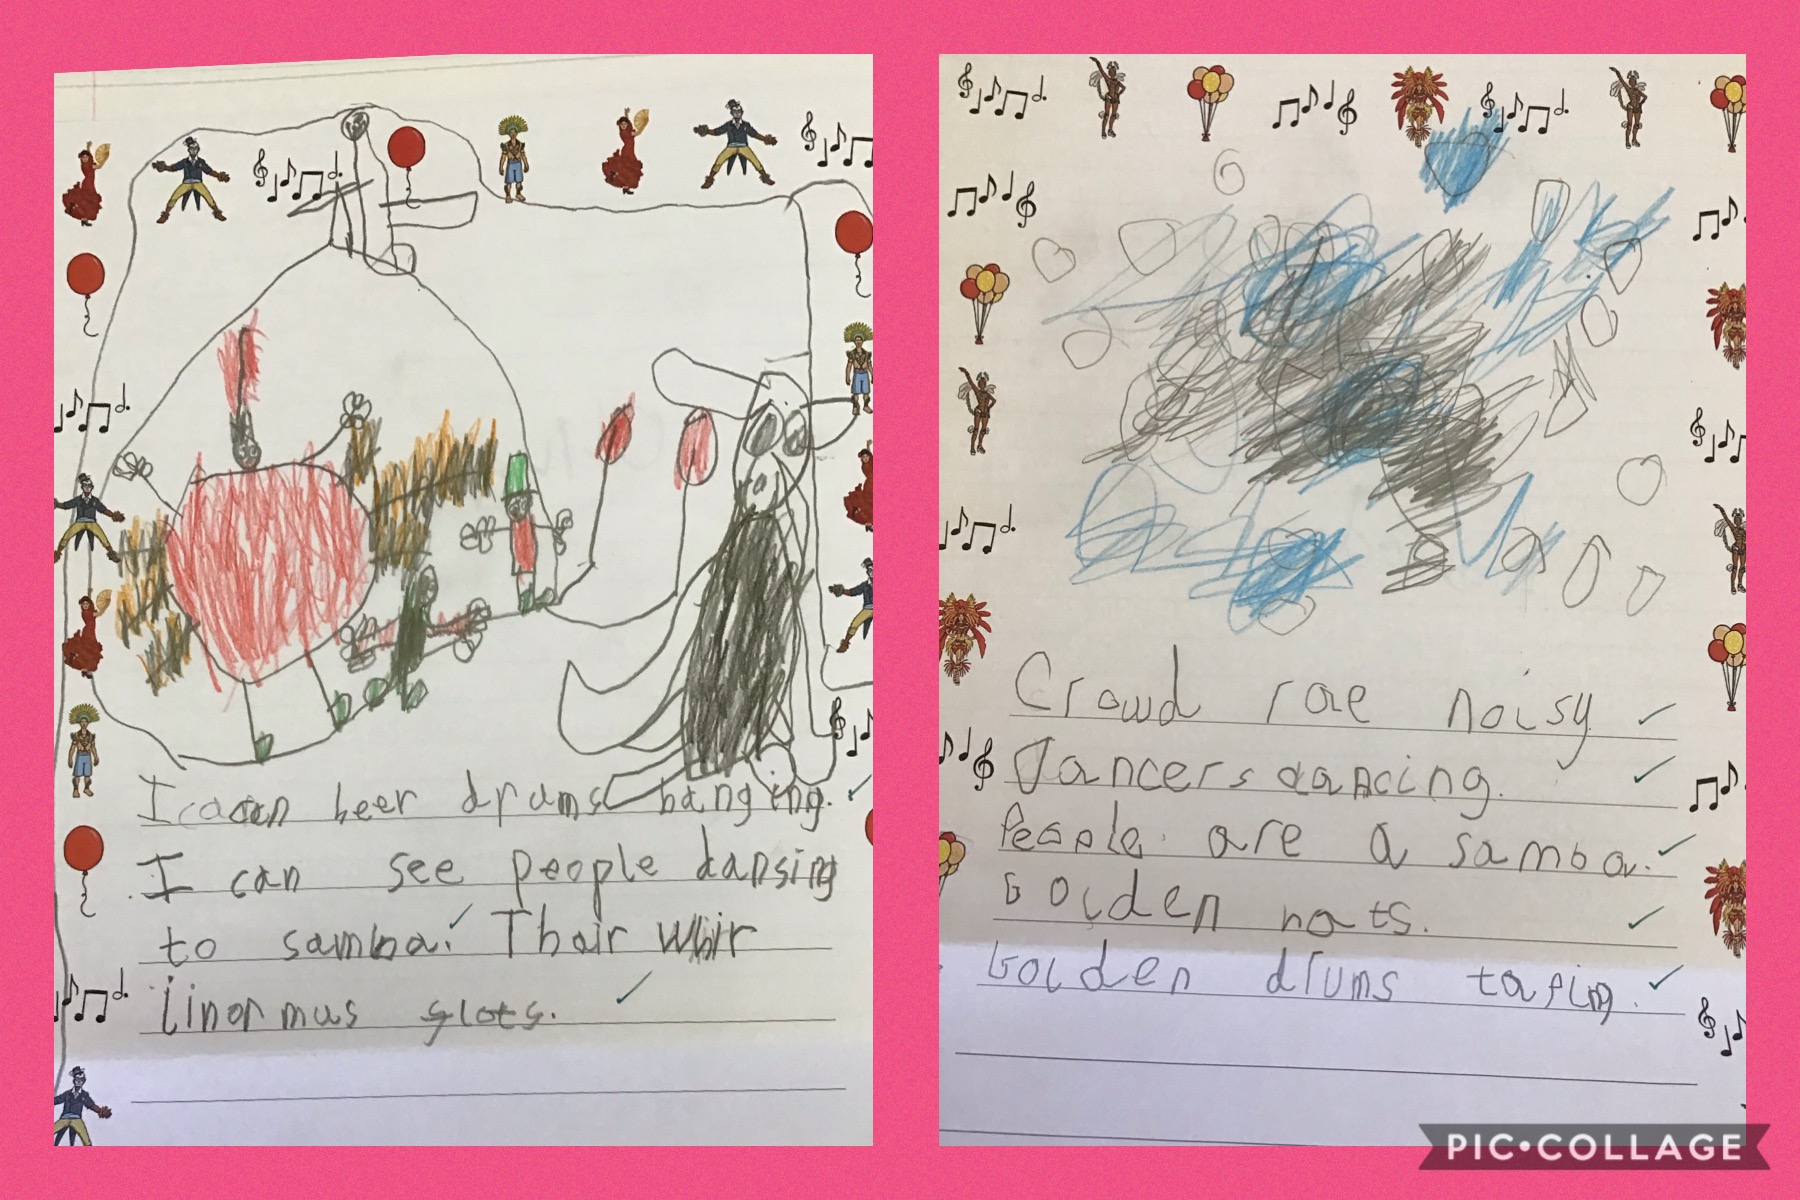 I can heer drums banging.
I can see people dansing
to samba. Thair whir
iinormus flots.
Crowd rae noisy
Dancers dancing.
People are a samba.
Golden hats.
Golden drums taping.
PIC•COLLAGE